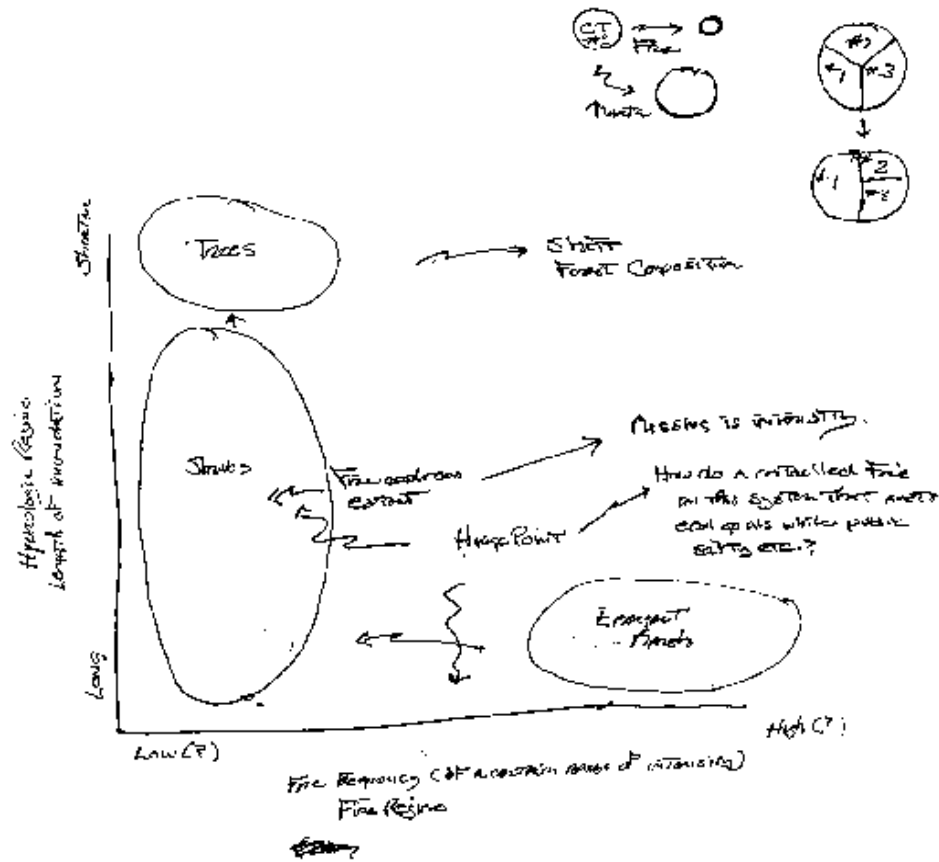 CT
Fire
#2
#1 #3
#1 2
Shorter
Trees
Shift
Forest Composition
Hydrologic Regime
Length of inundation
Shrubs
Missing is intensity.
Fire
extent
How do a controlled Fire
in this system that meets
ecol goals while public
safety etc.?
Hinge Point
Emergent
Marsh
Long
Low (?)
High (?)
Fire Frequency (of a certain range of intensity)
Fire Regime